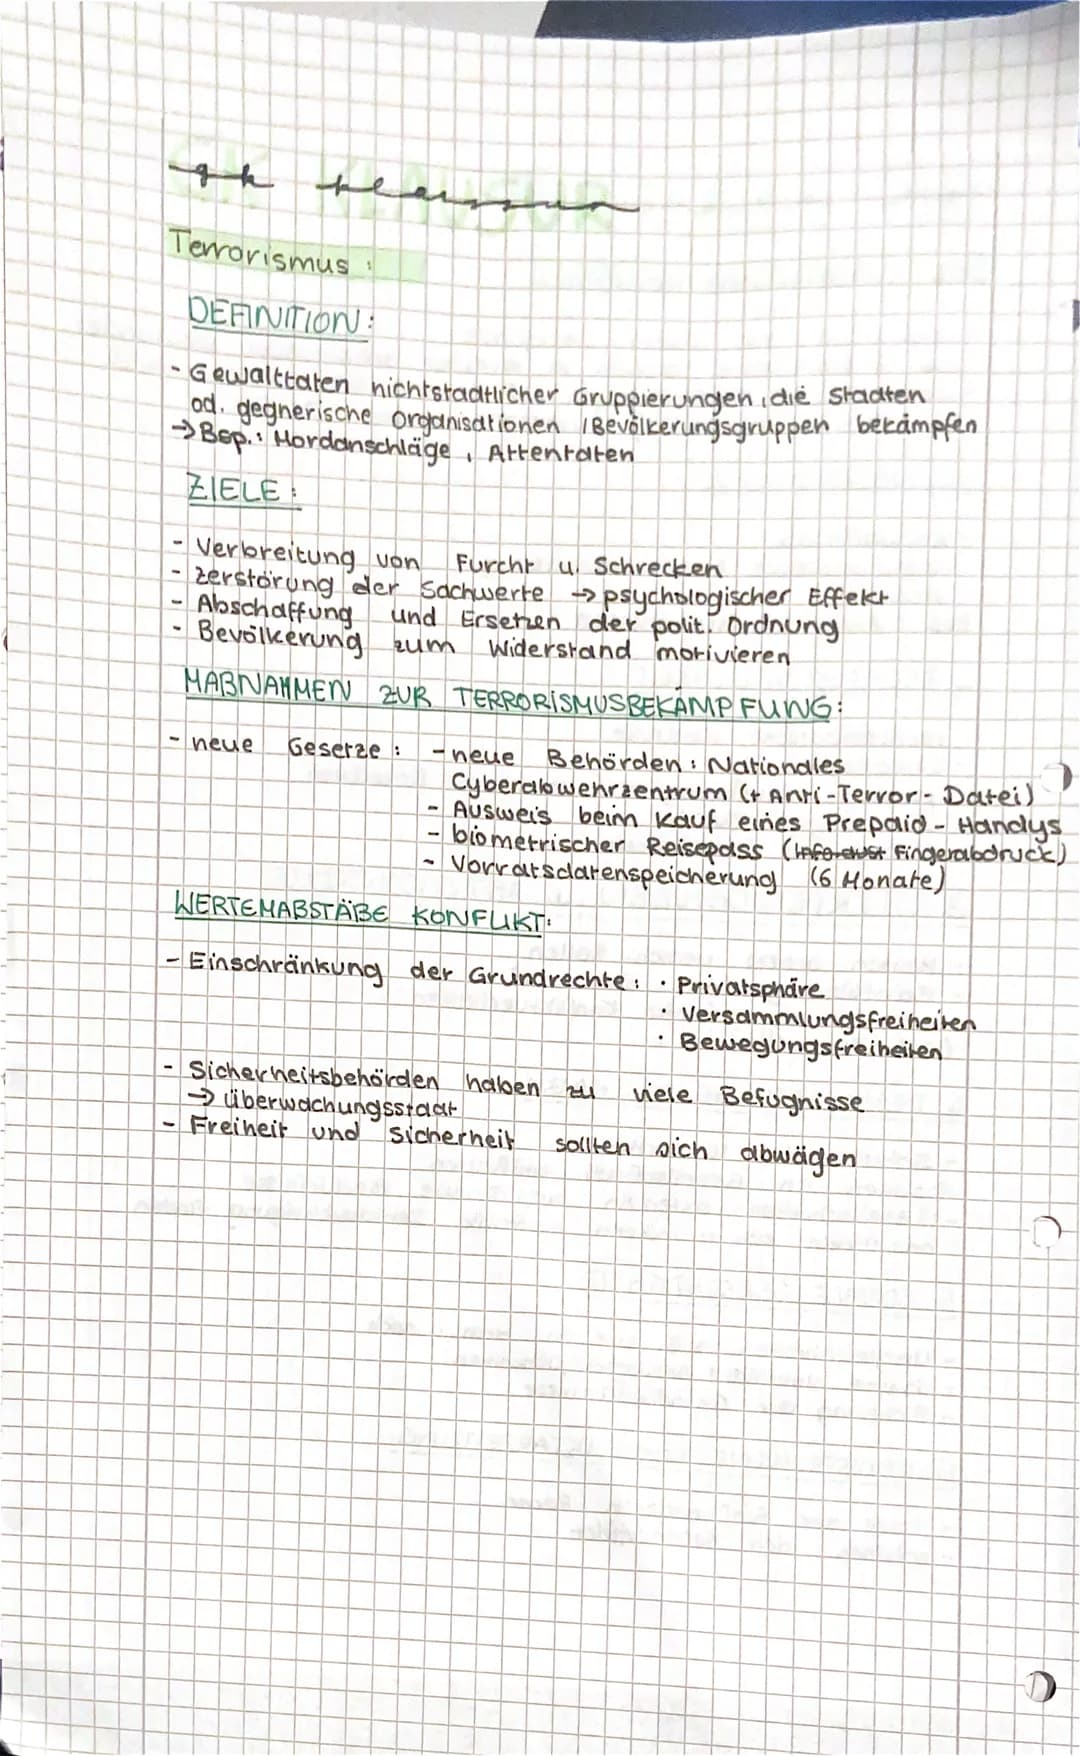 gk klausur
Terrorismus:
DEFINITION:
- Gewalttaten nichtstaatlicher Gruppierungen, die Staaten
od. gegnerische Organisationen / Bevölkerungsgruppen bekämpfen
→ Bsp.: Mordanschläge, Attentaten
ZIELE:
- Verbreitung von Furcht u. Schrecken
- Zerstörung der Sachwerte → psychologischer Effekt
- Abschaffung und Ersetzen der polit. Ordnung
- Bevölkerung zum Widerstand motivieren
MAßNAHMEN ZUR TERRORISMUSBEKÄMPFUNG:
- neue Gesetze: - neue Behörden: Nationales
Cyberabwehrzentrum (+ Anti-Terror-Datei)
- Ausweis beim Kauf eines Prepaid-Handys
- biometrischer Reisepass (Fingerabdruck)
- Vorratsdatenspeicherung (6 Monate)
WERTEMAßSTÄBE KONFLIKT:
- Einschränkung der Grundrechte: · Privatsphäre
· Versammlungsfreiheiten
· Bewegungsfreiheiten
- Sicherheitsbehörden haben zu viele Befugnisse
→ Überwachungsstaat
- Freiheit und Sicherheit sollten sich abwägen